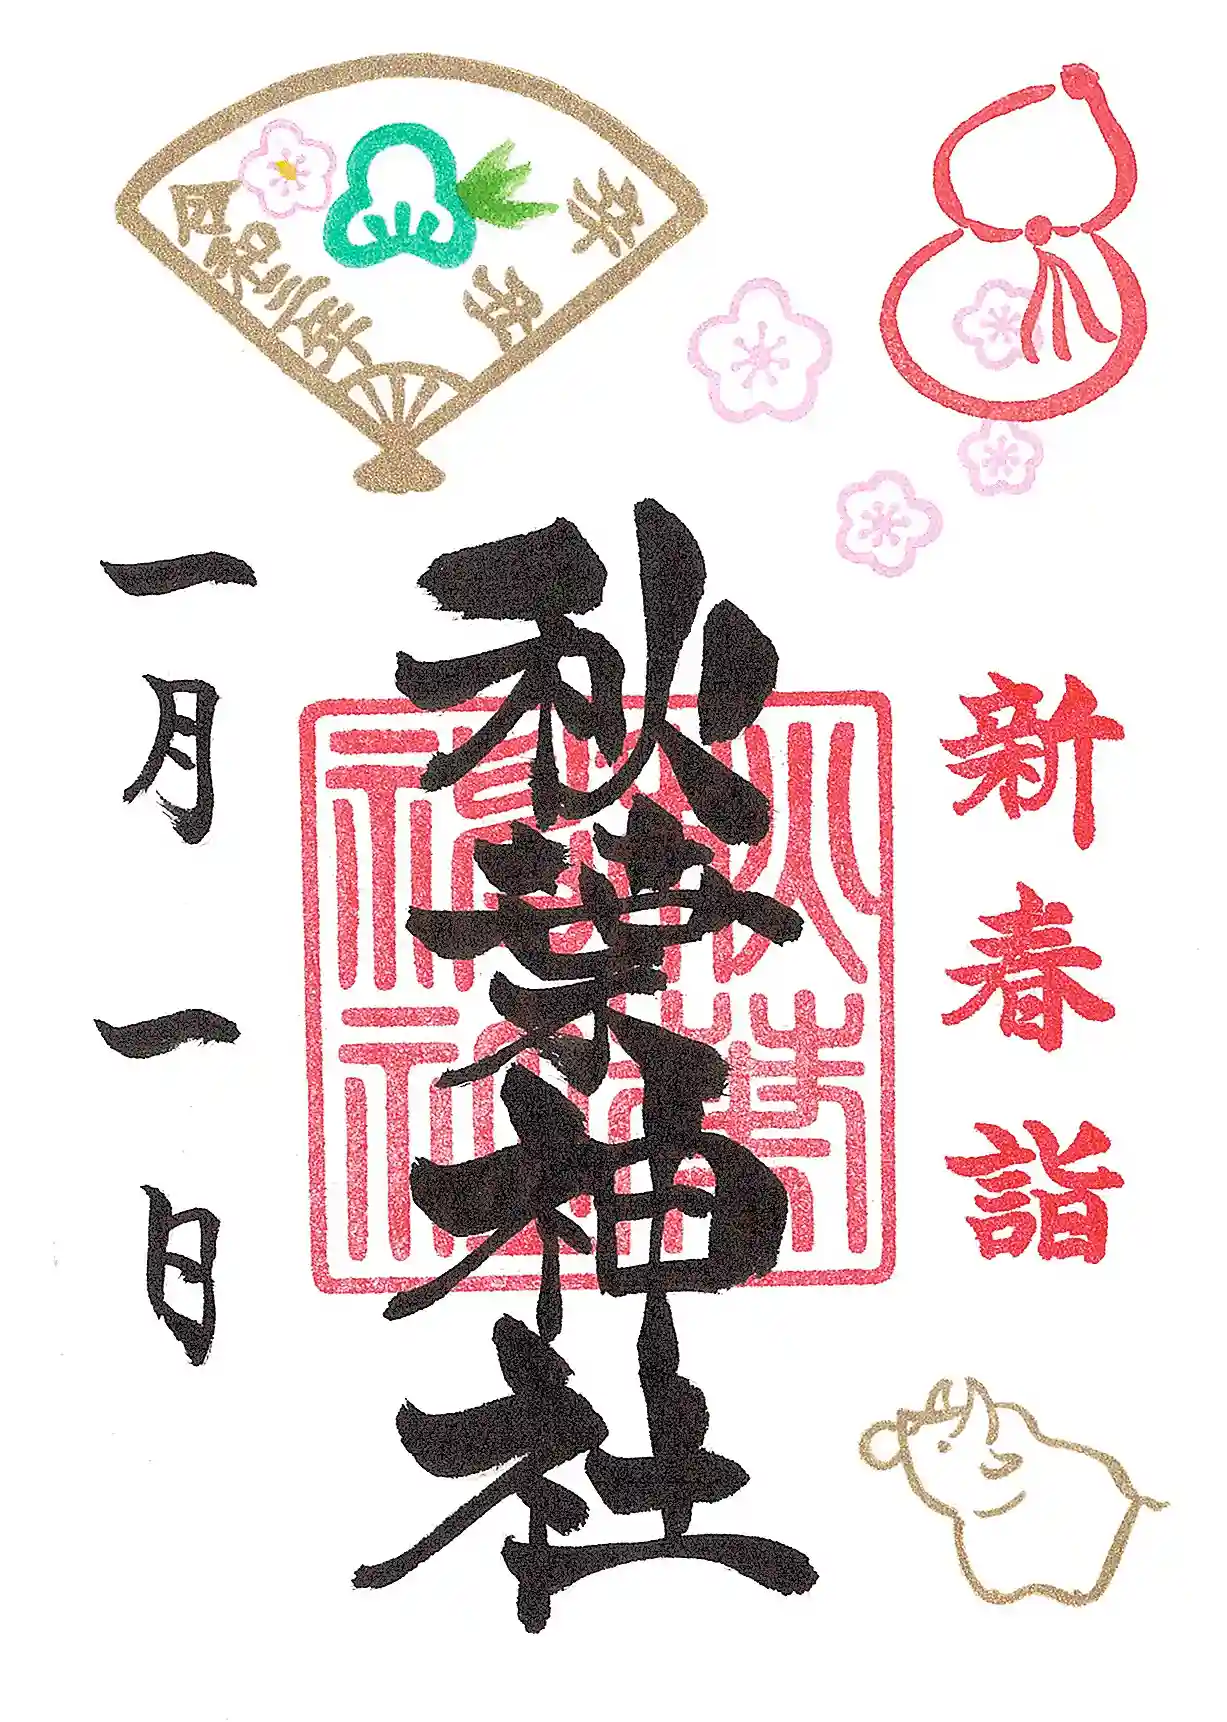 新春詣
秋葉神社
一月一日
令和三年
辛丑
秋葉
神社